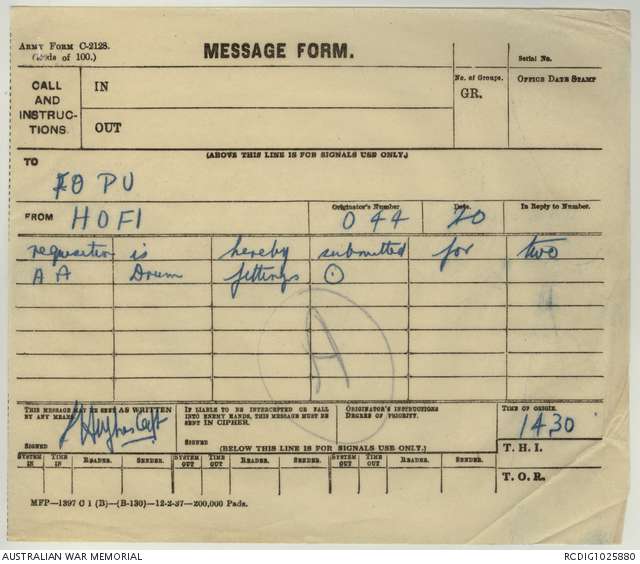 ARMY FORM C-2128.
(Pads of 100.)
MESSAGE FORM.
Serial No.
CALL
AND
INSTRUC-
TIONS.
IN
OUT
No. of Groups.
GR.
OFFICE DATE STAMP
(ABOVE THIS LINE IS FOR SIGNALS USE ONLY.)
TO
FOPU
FROM
HOFI
Originator's Number.
044
Date.
20
In Reply to Number.
requisition is hereby submitted for two
AA Drum fittings
A
THIS MESSAGE MAY BE SENT AS WRITTEN
BY ANY MEANS.
SIGNED
Hughes Capt
IF LIABLE TO BE INTERCEPTED OR FALL
INTO ENEMY HANDS, THIS MESSAGE MUST BE
SENT IN CIPHER.
SIGNED
ORIGINATOR'S INSTRUCTIONS
DEGREE OF PRIORITY.
TIME OF ORIGIN.
1430
(BELOW THIS LINE IS FOR SIGNALS USE ONLY.)
T. H. I.
SYSTEM IN TIME IN READER. SENDER. SYSTEM OUT TIME OUT READER. SENDER. SYSTEM OUT TIME OUT READER. SENDER.
T. O. R.
MFP—1397 C 1 (B)—(B-130)—12-2-37—200,000 Pads.
AUSTRALIAN WAR MEMORIAL
RCDIG1025880